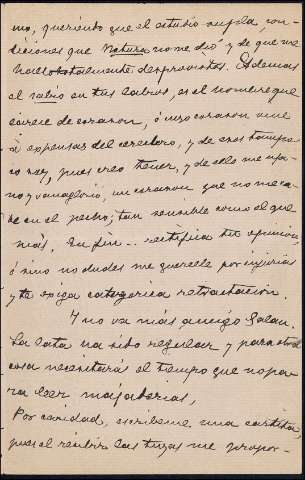 mo, queriendo que el estudio supla, con-
diciones que Natura no me dió y de que me
hallo totalmente desprovistos. Además
el sabio en tus labios, es el hombre que
carece de corazon, ó cuyo corazon vive
á expensas del cerebro, y de esos tampoco
soy, pues creo tener, y de ello me ufa-
no y vanaglorio, un corazon que no me ca-
be en el pecho, tan sensible como el que
más. En fin... rectifica tu opinion,
ó sino no dudes me querelle por injurias
y te exija categórica retractación.
Y no va más amigo Galan.
La lata ha sido regular y para otra
cosa necesitarás el tiempo que no pa-
ra leer majaderias.
Por caridad, escribeme una cartita,
pues al recibir las tuyas me propor-